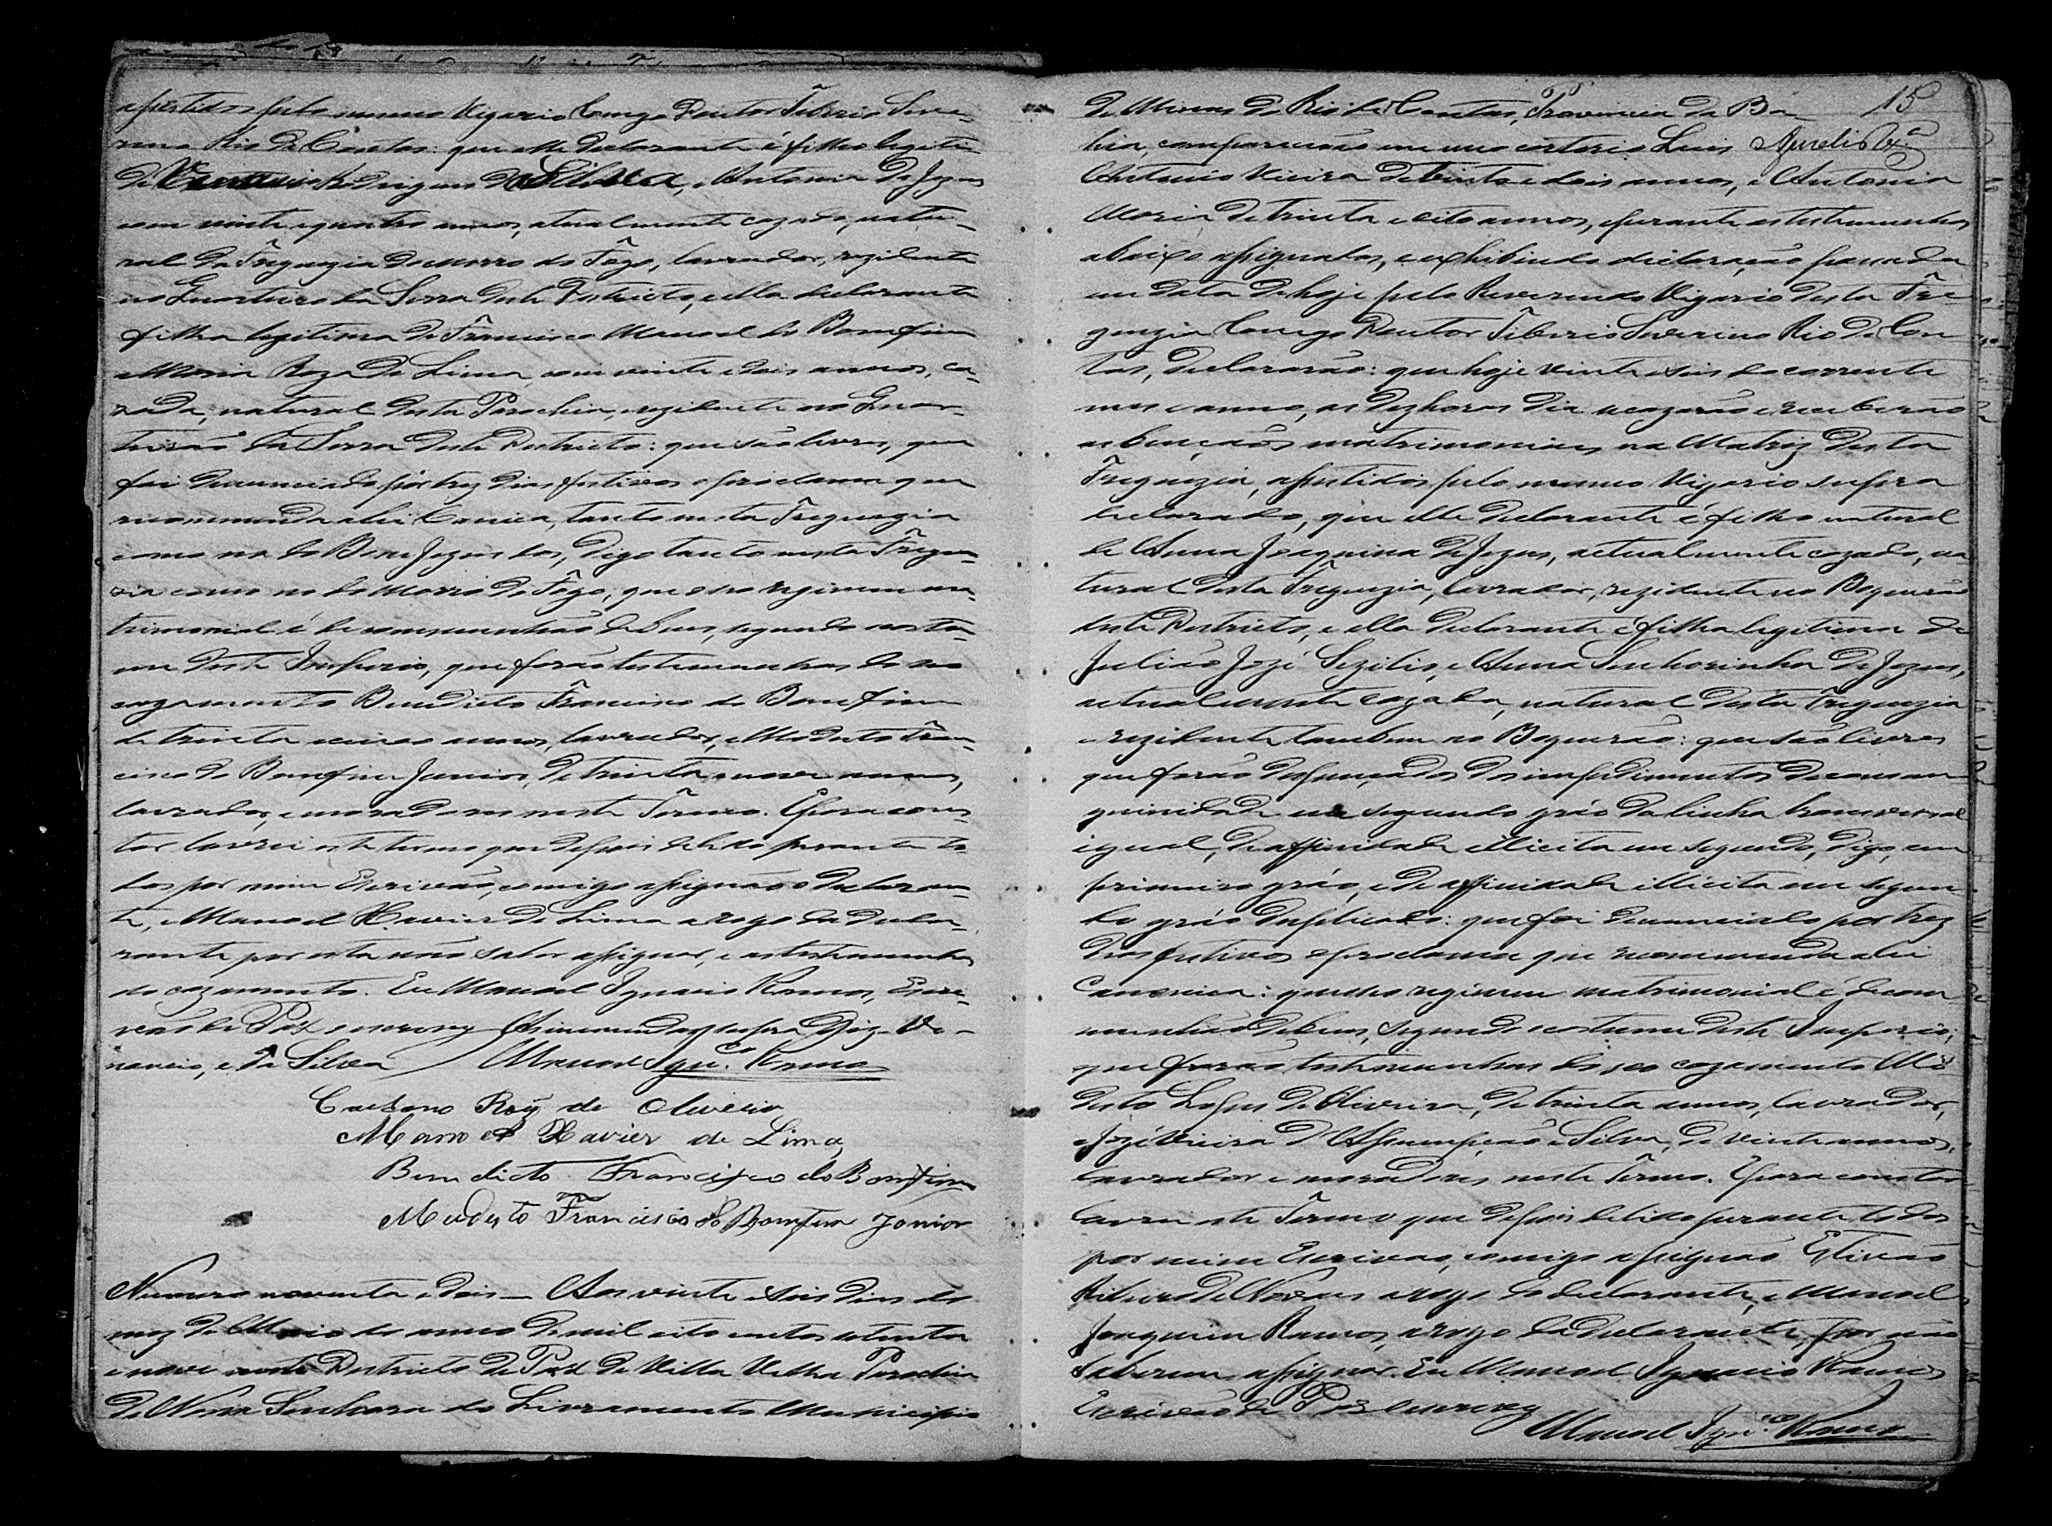 assistidos pelo mesmo Vigario Conego Doutor Tiberio Seve-
rino Rio de Contas: que elle declarante é filho legiti-
de Venancio Rodrigues da Silva, e Antonia de Jezus
com vinte e quatro annos, atualmente cazado, natu-
ral da Freguezia do Morro do Fogo, lavrador, rezidente
no Quarteirão da Serra deste Destricto, e ella declarante
filha legitima de Francisco Manoel do Bomfim
e Maria Roza de Lima, com vinte e dois annos, ca-
zada, natural desta Parochia, rezidente no Quar-
teirão da Serra deste Destricto: que são livres, que
foi denunciado por trez dias festivos o proclama que
recommenda a Lei Canonica, tanto nesta Freguezia
como na do Bom Jezus dos, digo tanto nesta Fregue-
zia como na do Morro do Fogo; que o seo regimem ma-
trimonial é de communhão de bens, segundo costu-
me deste Imperio, que forão testemunhas do seo
cazamento Benedicto Francisco do Bomfim
de trinta e cinco annos, lavrador, e Modesto Fran-
cisco do Bomfim Junior, de trinta e nove annos,
lavrador, e moradores neste Termo. E para cons-
tar lavrei este termo que depois de lido perante to-
dos por mim Escrivão, comigo assignão o declaran-
te, e Manoel Xavier de Lima a rogo da decla-
rante por esta não saber assignar, e as testemunhas
do cazamento. Eu Manoel Ignacio Ramos, Escri-
vão de Paz o escrevy Emmendas supra diz Ve-
nancio, e da Silva Manoel Ign.co Ramos
Caetano Roiz de Oliveira
Manoel Xavier de Lima
Benedicto Francisco do Bomfim
Modesto Francisco do Bomfim Junior
Numero noventa e dois — Aos vinte e seis dias do
mez de Maio do anno de mil oito centos setenta
e nove neste Destricto de Paz de Villa Velha Parochia
de Nossa Senhora do Livramento Municipio
15
de Minas do Rio de Contas, Provincia da Ba-
hia, comparecerão em meo cartorio Luis Aurelio
Antonio Vieira de trinta e dois annos, e Antonia
Maria de trinta e oito annos, e perante as testemunhas
abaixo assignadas, e exhibindo declaração passada
em data de hoje pelo Reverendo Vigario desta Fre-
guezia Conego Doutor Tiberio Severino Rio de Con-
tas, declararão: que hoje vinte e seis do corrente
mez e anno, as dez horas dia se cazarão e receberão
as bençãos matrimoniaes na Matriz desta
Freguezia, assistidos pelo mesmo Vigario supra
declarado, que elle declarante é filho natural
de Anna Joaquina de Jezus, actualmente cazado, na-
tural desta Freguezia, lavrador, rezidente no Boqueirão
deste Destricto, e ella declarante é filha legitima de
Julião Jozé Sezilio, e Anna Senhorinha de Jezus,
actualmente cazada, natural desta Freguezia
e rezidente tambem no Boqueirão: que são livres
que forão despençados dos impedimentos de consan
guinidade em segundo gráo da linha transversal
igual, de affinidade illicita em segundo, digo, em
primeiro gráo, e de affinidade illicita em segun-
do gráo duplicado: que foi denunciado por trez
dias festivos o proclama que recommenda a Lei
Canonica: que seo regimem matrimonial é de com
munhão de bens, segundo costume deste Imperio;
que forão testemunhas do seo cazamento Mo-
desto Lopes de Oliveira, de trinta annos, lavrador,
e Jozé Vieira d'Assumpção e Silva, de vinte annos,
lavrador e moradores neste Termo. E para constar
lavrei este Termo que depois de lido perante todos
por mim Escrivão, comigo assignão Estevão
Ribeiro de Novaes a rogo do declarante, e Manoel
Joaquim Ramos, a rogo da declarante, por não
saberem assignar. Eu Manoel Ignacio Ramos
Escrivão de Paz o escrevy
Manoel Ign.co Ramos